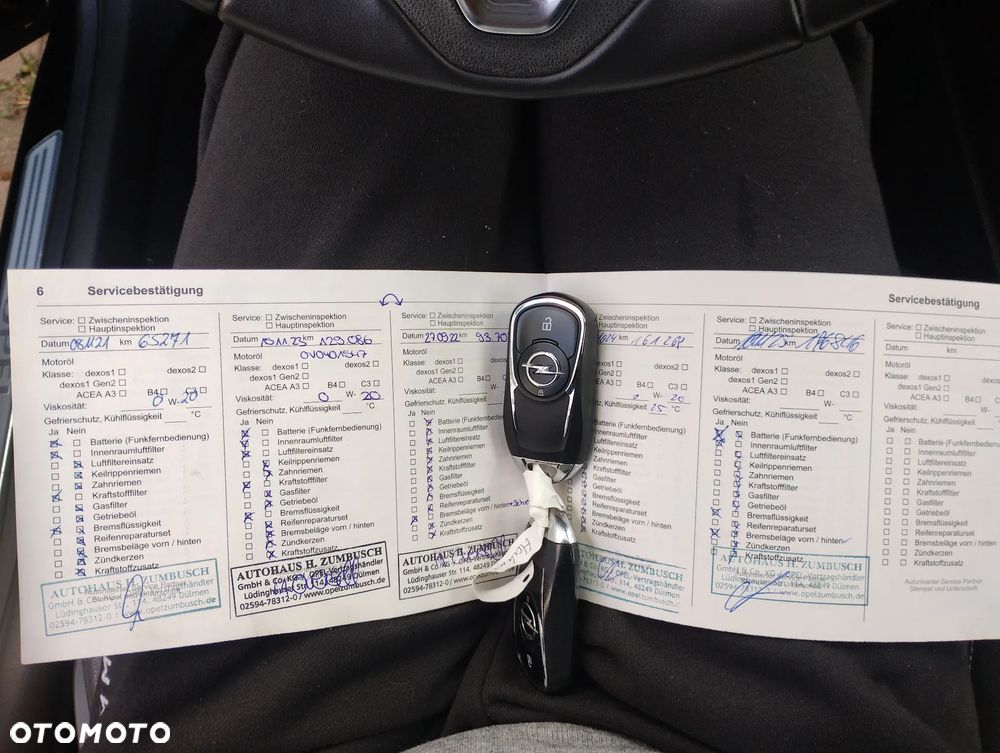 6 Servicebestätigung
Service: Zwischeninspektion
Hauptinspektion
Datum 08.11.21 km 65271
Motoröl
Klasse: dexos1 dexos2
dexos1 Gen2
ACEA A3 B4 C3
Viskosität: 0 W- 20
Gefrierschutz, Kühlflüssigkeit °C
Ja Nein
Batterie (Funkfernbedienung)
Innenraumluftfilter
Luftfiltereinsatz
Keilrippenriemen
Zahnriemen
Kraftstofffilter
Gasfilter
Getriebeöl
Bremsflüssigkeit
Reifenreparaturset
Bremsbeläge vorn / hinten
Zündkerzen
Kraftstoffzusatz
AUTOHAUS H. ZUMBUSCH
GmbH & Co.
Lüdinghauser Str. 114, 48249 Dülmen
02594-78312-0 / www.opelzumbusch.de
Service: Zwischeninspektion
Hauptinspektion
Datum km 129086
Motoröl
Klasse: dexos1 dexos2
dexos1 Gen2
ACEA A3 B4 C3
Viskosität: 0 W- 20
Gefrierschutz, Kühlflüssigkeit °C
Ja Nein
Batterie (Funkfernbedienung)
Innenraumluftfilter
Luftfiltereinsatz
Keilrippenriemen
Zahnriemen
Kraftstofffilter
Gasfilter
Getriebeöl
Bremsflüssigkeit
Reifenreparaturset
Bremsbeläge vorn / hinten
Zündkerzen
Kraftstoffzusatz
AUTOHAUS H. ZUMBUSCH
GmbH & Co. KG, OPEL-Vertragshändler
Lüdinghauser Str. 114, 48249 Dülmen
02594-78312-0 / www.opelzumbusch.de
Service: Zwischeninspektion
Hauptinspektion
Datum 27.09.22 km
Motoröl
Klasse: dexos1
dexos1 Gen2
ACEA A3 B4
Viskosität:
Gefrierschutz, Kühlflüssigkeit
Ja Nein
Batterie (Funkfernbedienung)
Innenraumluftfilter
Luftfiltereinsatz
Keilrippenriemen
Zahnriemen
Kraftstofffilter
Gasfilter
Getriebeöl
Bremsflüssigkeit
Reifenreparaturset
Bremsbeläge vorn / hinten
Zündkerzen
Kraftstoffzusatz
AUTOHAUS H.
GmbH & Co. KG, OPEL
Lüdinghauser Str. 114, 48249
02594-78312-0 / www.opelzu
Servicebestätigung
Zwischeninspektion
Hauptinspektion
km 161281
dexos1 dexos2
B4 C3
W- 20
Kühlflüssigkeit 25 °C
Batterie (Funkfernbedienung)
Innenraumluftfilter
Luftfiltereinsatz
Keilrippenriemen
Zahnriemen
Kraftstofffilter
Gasfilter
Getriebeöl
Bremsflüssigkeit
Reifenreparaturset
Bremsbeläge vorn / hinten
Zündkerzen
Kraftstoffzusatz
H. ZUMBUSCH
OPEL-Vertragshändler
114, 48249 Dülmen
www.opelzumbusch.de
Service: Zwischeninspektion
Hauptinspektion
Datum km
Motoröl
Klasse: dexos1 dexos2
dexos1 Gen2
ACEA A3 B4 C3
Viskosität: W-
Gefrierschutz, Kühlflüssigkeit °C
Ja Nein
Batterie (Funkfernbedienung)
Innenraumluftfilter
Luftfiltereinsatz
Keilrippenriemen
Zahnriemen
Kraftstofffilter
Gasfilter
Getriebeöl
Bremsflüssigkeit
Reifenreparaturset
Bremsbeläge vorn / hinten
Zündkerzen
Kraftstoffzusatz
AUTOHAUS H. ZUMBUSCH
GmbH & Co.
Lüdinghauser Str. 114, 48249 Dülmen
02594-78312-0 / www.opelzumbusch.de
Service: Zwischeninspektion
Hauptinspektion
Datum km
Motoröl
Klasse: dexos1
dexos1 Gen2
ACEA A3 B4
Viskosität:
Gefrierschutz, Kühlflüssigkeit
Ja Nein
Batterie (Funkfernbedienung)
Innenraumluftfilter
Luftfiltereinsatz
Keilrippenriemen
Zahnriemen
Kraftstofffilter
Gasfilter
Getriebeöl
Bremsflüssigkeit
Reifenreparaturset
Bremsbeläge vorn /
Zündkerzen
Kraftstoffzusatz
Autorisierter Service Partner
Stempel und Unterschrift
OTOMOTO